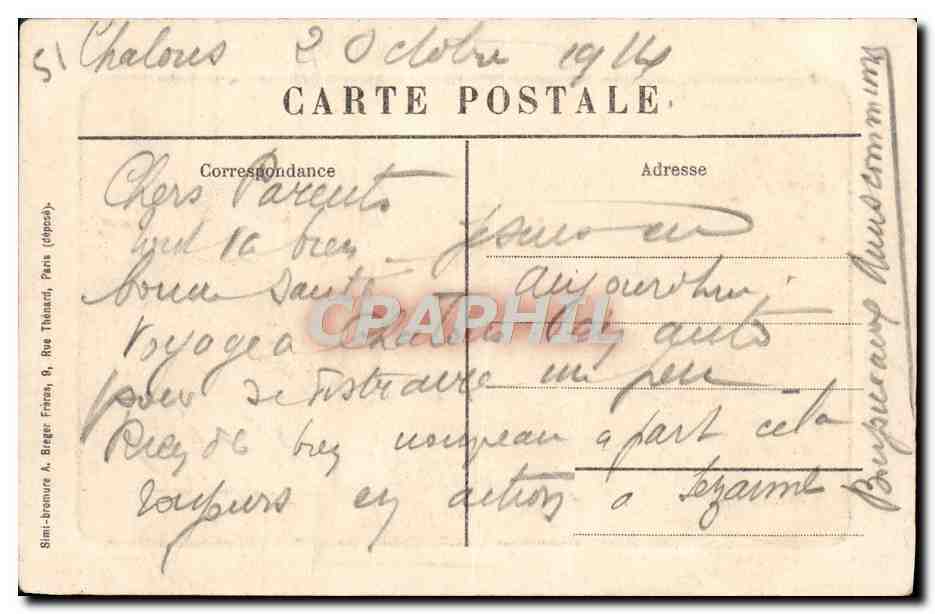 51 Chalons 2 Octobre 1914
CARTE POSTALE
Correspondance
Adresse
Chers Parents
tout va bien je suis en
bonne santé aujourd'hui
voyage a Chalons en auto
pour se distraire un peu
Rien de nouveau a part cela
toujours en action a Sezanne
Simi-bromure A. Breger Frères, 9, Rue Thénard, Paris (déposé).
CPAPHIL